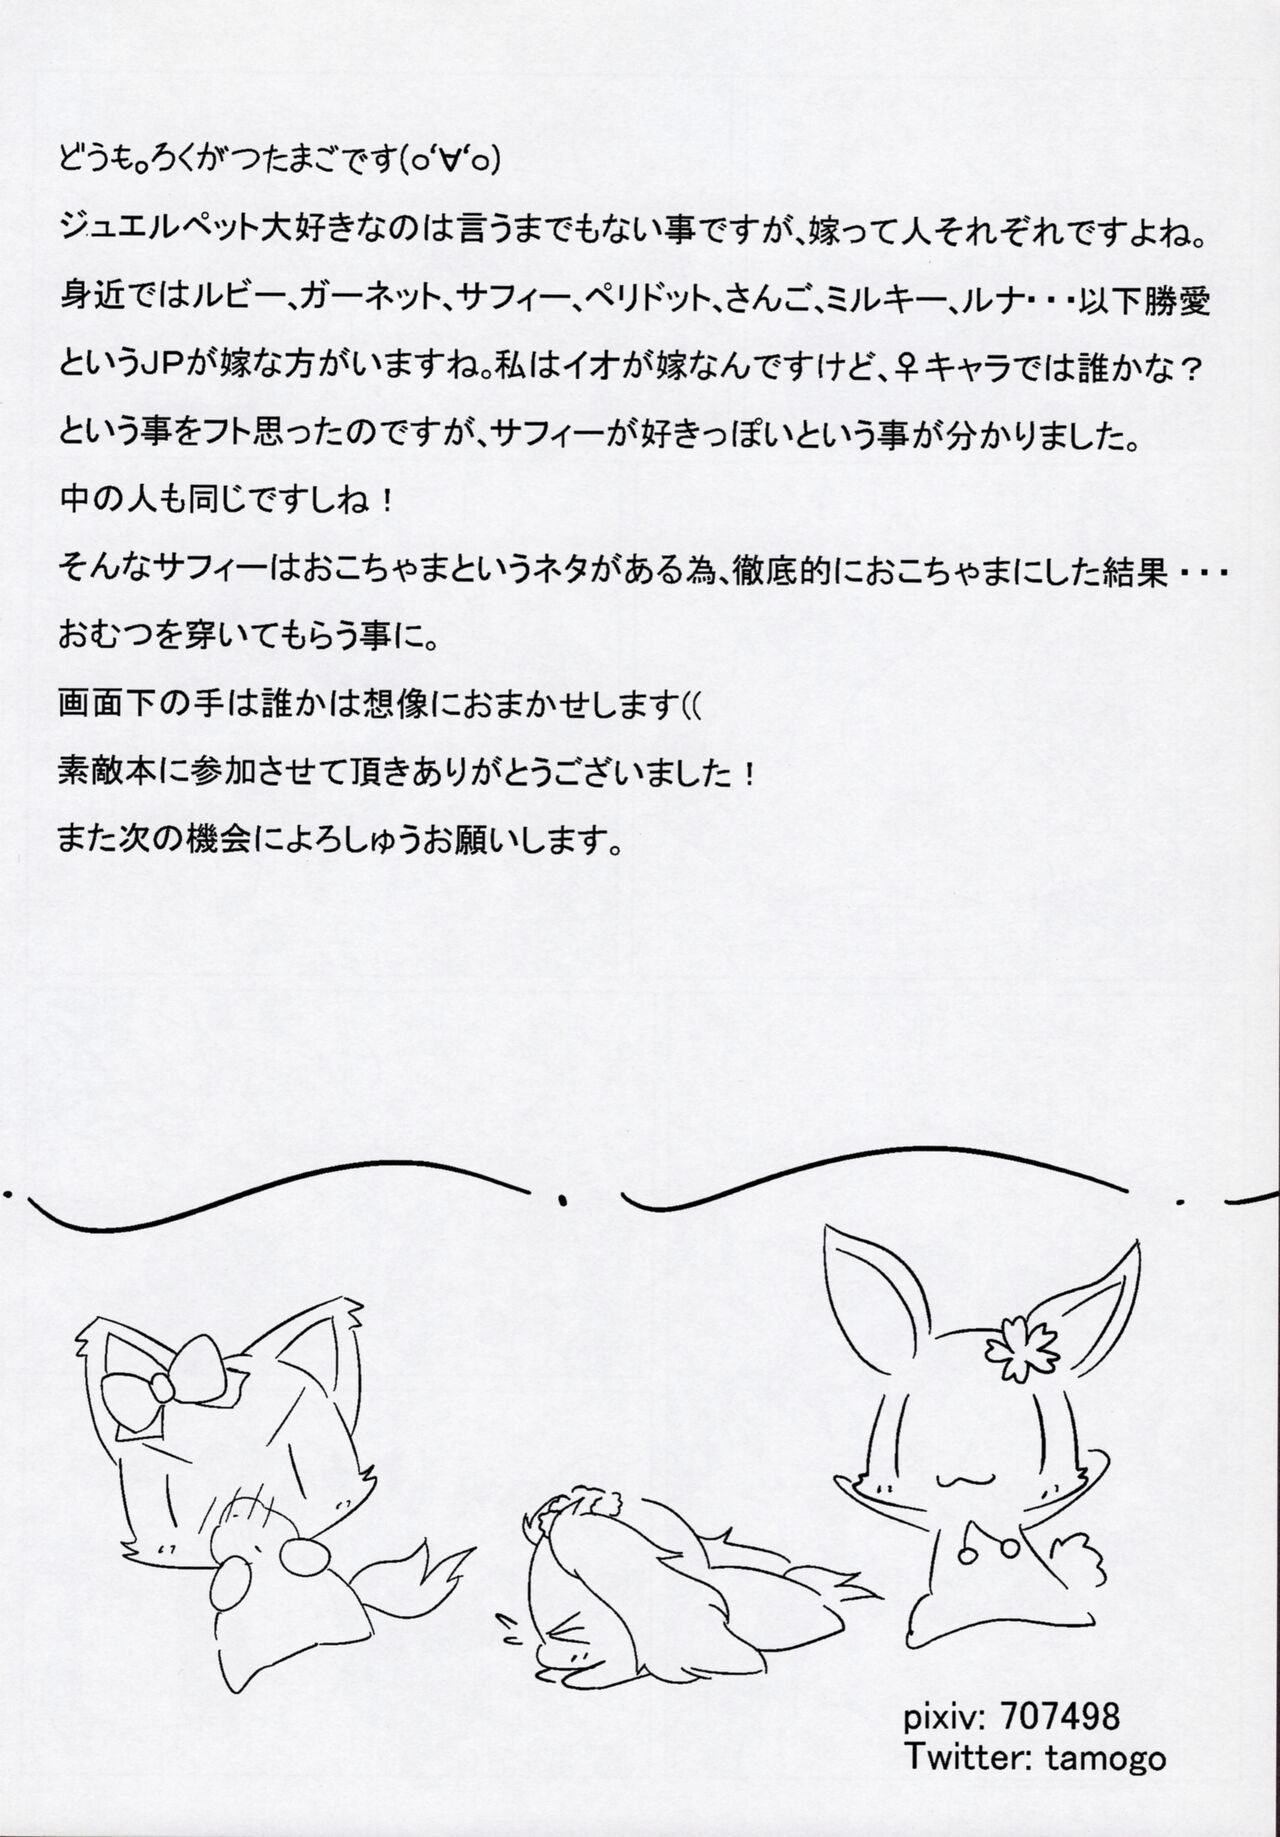 どうも。ろくがつたまごです(o‘∀‘o)
ジュエルペット大好きなのは言うまでもない事ですが、嫁って人それぞれですよね。
身近ではルビー、ガーネット、サフィー、ペリドット、さんご、ミルキー、ルナ・・・以下勝愛
というJPが嫁な方がいますね。私はイオが嫁なんですけど、♀キャラでは誰かな？
という事をフト思ったのですが、サフィーが好きっぽいという事が分かりました。
中の人も同じですしね！
そんなサフィーはおこちゃまというネタがある為、徹底的におこちゃまにした結果・・・
おむつを穿いてもらう事に。
画面下の手は誰かは想像におまかせします((
素敵本に参加させて頂きありがとうございました！
また次の機会によろしゅうお願いします。
pixiv: 707498
Twitter: tamogo